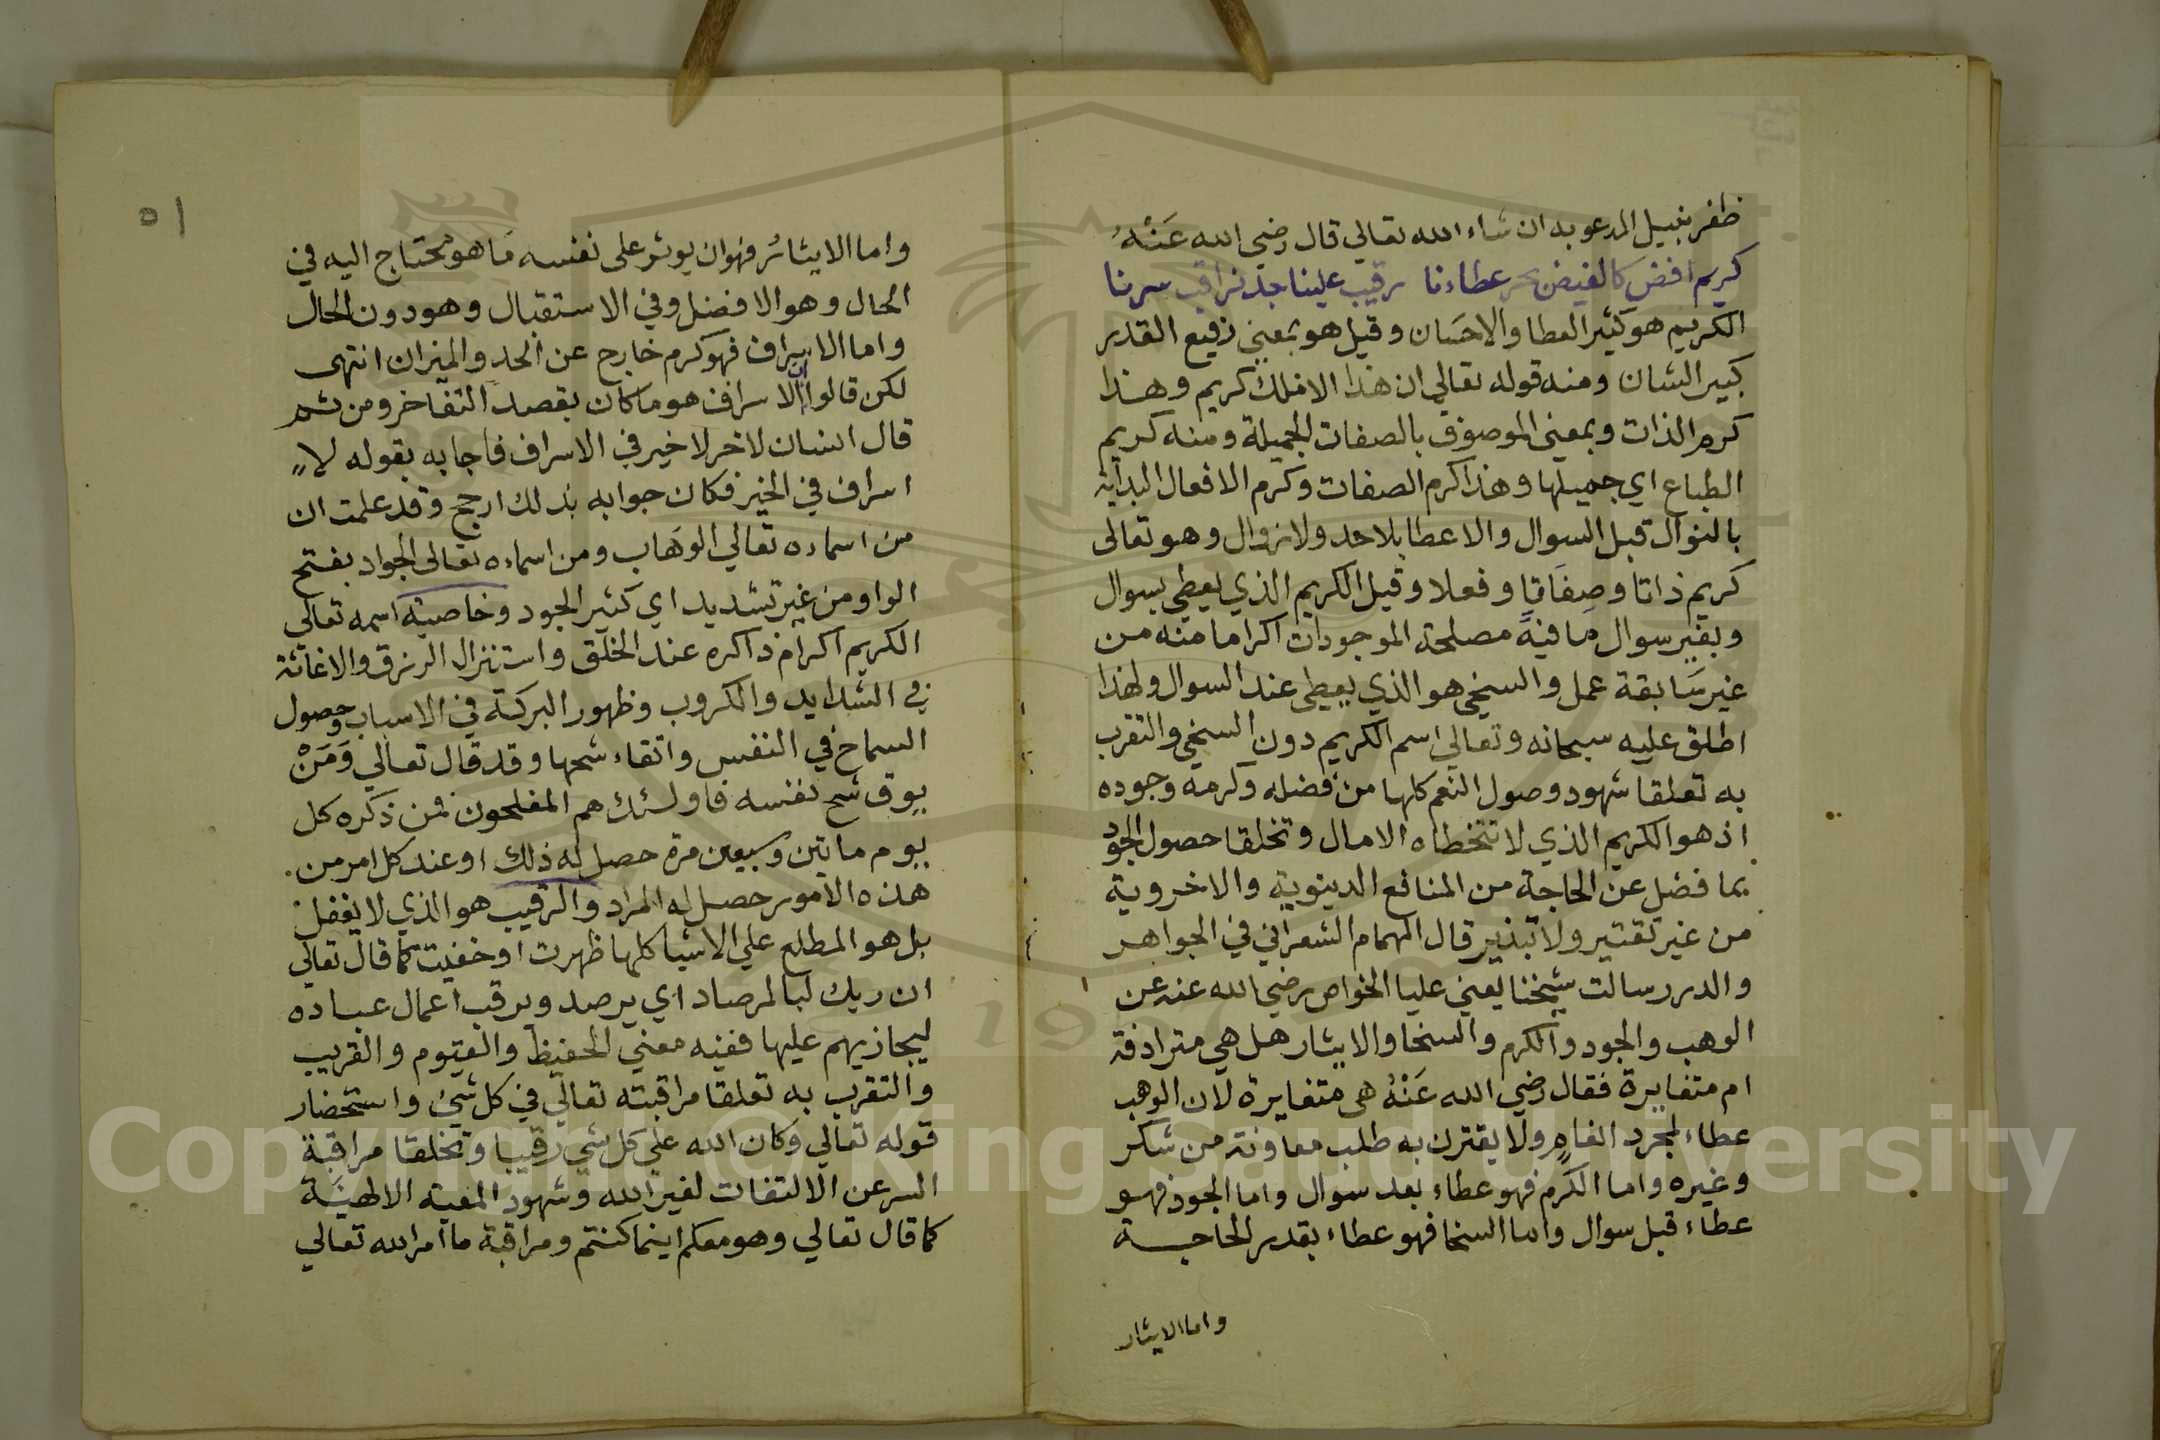 ظفر بنيل المدعو به ان شاء الله تعالي قال رضي الله عَنْهُ
كريم افض كالفيض بحر عطاءنا رقيب علينا جد نراقب سرنا
الكريم هو كثير العطا والاحسَان وقيل هو بمعني رفيع القدر
كبير الشان ومنه قوله تعالي ان هذا الا ملك كريم وهذا
كرم الذات وبمعني الموصوف بالصفات الجميلة ومنه كريم
الطباع اي جميلها وهذا كرم الصفات وكرم الافعال البداية
بالنوال قبل السوال والاعطا بلا حد ولا زوال وهو تعالى
كريم ذاتا وصفاتا وفعلا وقيل الكريم الذي يعطي بسوال
وبغير سوال ما فيه مصلحة الموجودات اكراما منه من
غير سَابقة عمل والسخي هو الذي يعطي عند السوال ولهذا
اطلق عليه سبحانه وتعالي اسم الكريم دون السخي والتقرب
به تعلقا شهود وصول النعم كلها من فضله وكرمه وجوده
اذ هو الكريم الذي لا تتخطاه الامال وتخلقا حصول الجود
بما فضل عن الحاجة من المنافع الدينوية والاخروية
من غير تقتير ولا تبذير قال الهمام الشعراني في الجواهر
والدرر سالت شيخنا يعني عليا الخواص رضي الله عنه عن
الوهب والجود والكرم والسخا والايثار هل هي مترادفة
ام متغايرة فقال رضي الله عَنْهُ هي متغايرة لان الوهب
عطاء لمجرد ولا يقترن به طلب معاونة من شكر
وغيره واما الكرم فهو عطاء بعد سوال واما الجود فهو
عطاء قبل سوال واما السخا فهو عطاء بقدر الحاجـة
واما الايثار
٥١
واما الايثار فهو ان يوثر على نفسه مَا هو محتاج اليه في
الحال وهو الافضل وفي الاستقبال وهو دون الحال
واما الاسراف فهو كرم خارج عن الحد والميزان انتهى
لكن قالوا ان الاسراف هو ما كان بقصد التفاخر ومن ثم
قال انسان لاخر لا خير في الاسراف فاجابه بقوله لا
اسراف في الخير فكان جوابه بذلك ارجح وقد علمت ان
من اسماءه تعالي الوهاب ومن اسماءه تعالى الجواد بفتح
الواو من غير تشديد اي كثير الجود وخاصية اسمه تعالي
الكريم اكرام ذاكره عند الخلق واستنزال الرزق والاغاثة
في الشدايد والكروب وظهور البركة في الاسباب وحصول
السماح في النفس واتقاء شحها وقد قال تعالي وَمَنْ
يوق شح نفسه فاولئك هم المفلحون فمن ذكره كل
يوم مايتين وسبعين مرة حصل له ذلك او عند كل امر من
هذه الامور حصل له المراد والرقيب هو الذي لا يغفل
بل هو المطلع علي الاشيا كلها ظهرت او خفيت كما قال تعالي
ان ربك لبالمرصاد اي يرصد ويرقب اعمال عباده
ليجازيهم عليها ففيه معني الحفيظ والقيوم والقريب
والتقرب به تعلقا مراقبته تعالي في كل شيء واستحضار
قوله تعالي وكان الله علي كل شي رقيبا وتخلقا مراقبة
السر عن الالتفات لغير الله وشهود المعية الالهيَّة
كما قال تعالي وهو معكم اينما كنتم ومراقبة ما امر الله تعالي
Copyright © King Saud University